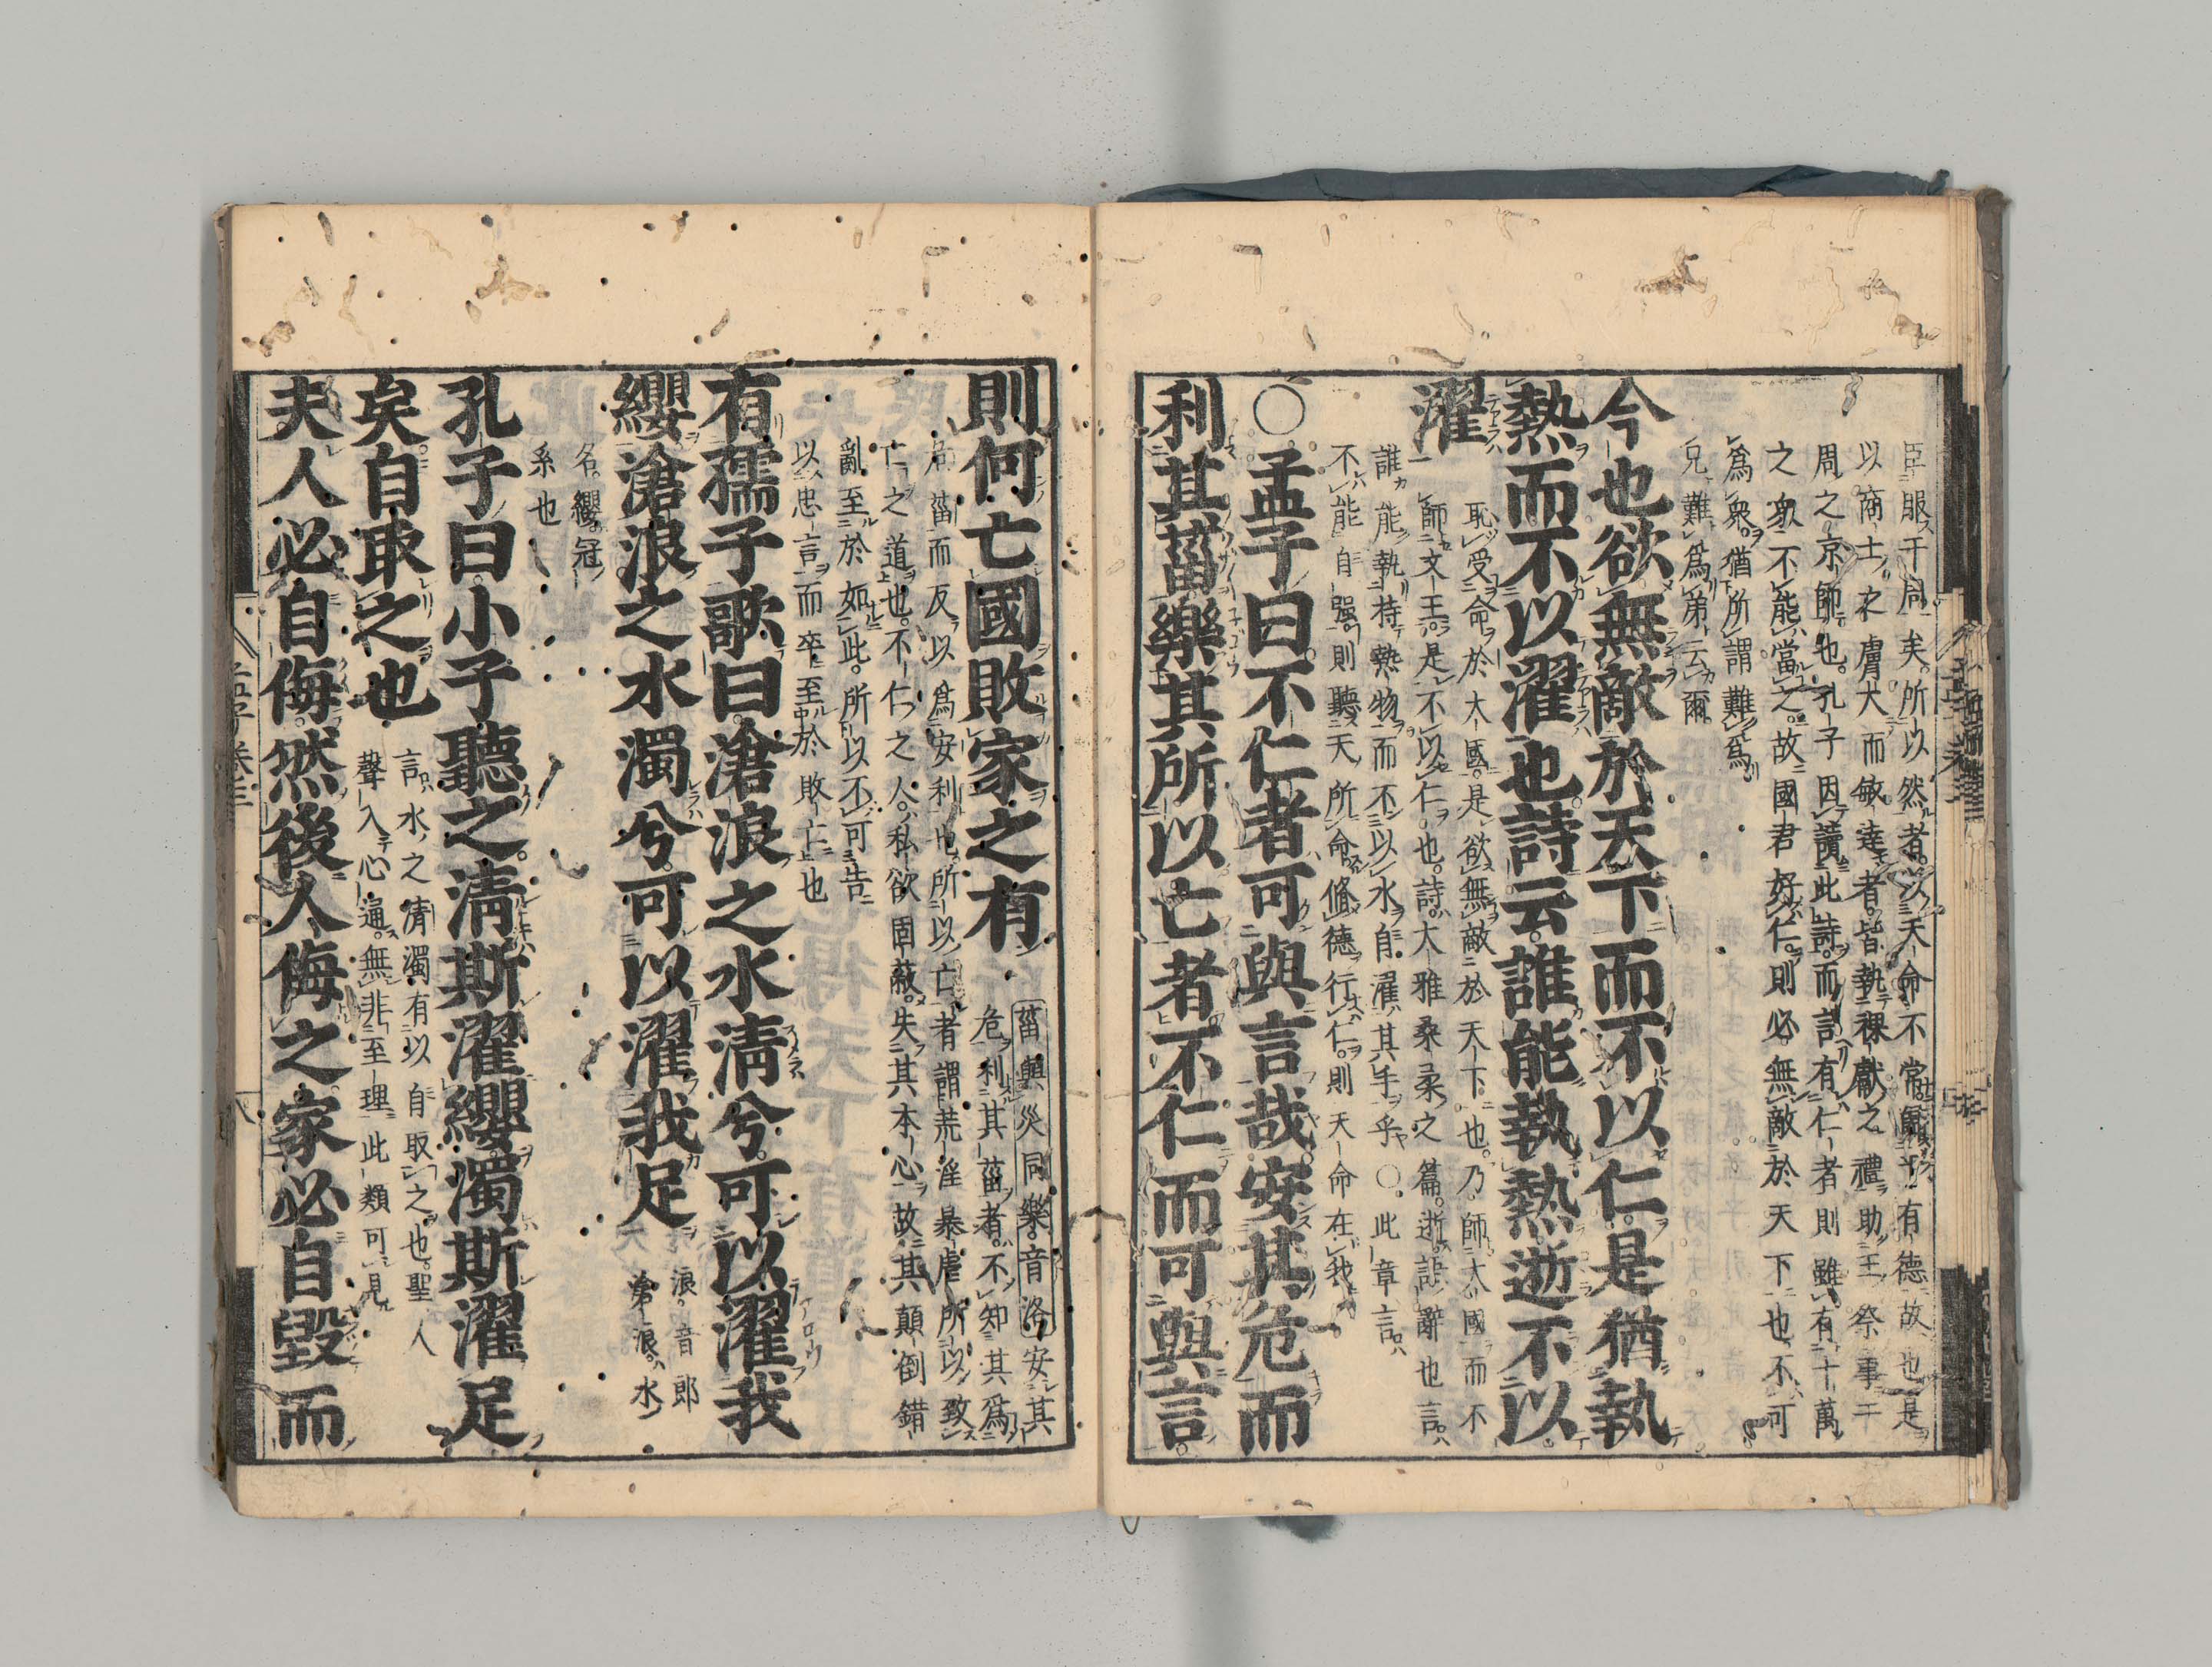 臣服于周矣所以然者以天命不常歸于有德故也是
以商士之膚大而敏達者皆執祼獻之禮助王祭事于
周之京師也孔子因讀此詩而言有仁者則雖有十萬
之衆不能當之故國君好仁則必無敵於天下也不可
爲衆猶所謂難爲
兄難爲弟云爾
今也欲無敵於天下而不以仁是猶執
熱而不以濯也詩云誰能執熱逝不以
濯
恥受命於大國是欲無敵於天下也乃師大國而不
師文王是不以仁也詩大雅桑柔之篇逝語辭也言
誰能執持熱物而不以水自濯其手乎○此章言
不能自強則聽天所命脩德行仁則天命在我
○孟子曰不仁者可與言哉安其危而
利其菑樂其所以亡者不仁而可與言
則何亡國敗家之有
菑與災同樂音洛安其
危利其菑者不知其爲
危菑而反以爲安利也所以亡者謂荒淫暴虐所以致
亡之道也不仁之人私欲固蔽失其本心故其顚倒錯
亂至於如此所以不可告
以忠言而卒至於敗亡也
有孺子歌曰滄浪之水淸兮可以濯我
纓滄浪之水濁兮可以濯我足
浪音郎
滄浪水
名纓冠
系也
孔子曰小子聽之淸斯濯纓濁斯濯足
矣自取之也
言水之淸濁有以自取之也聖人
聲入心通無非至理此類可見
夫人必自侮然後人侮之家必自毀而
孟子卷三
八